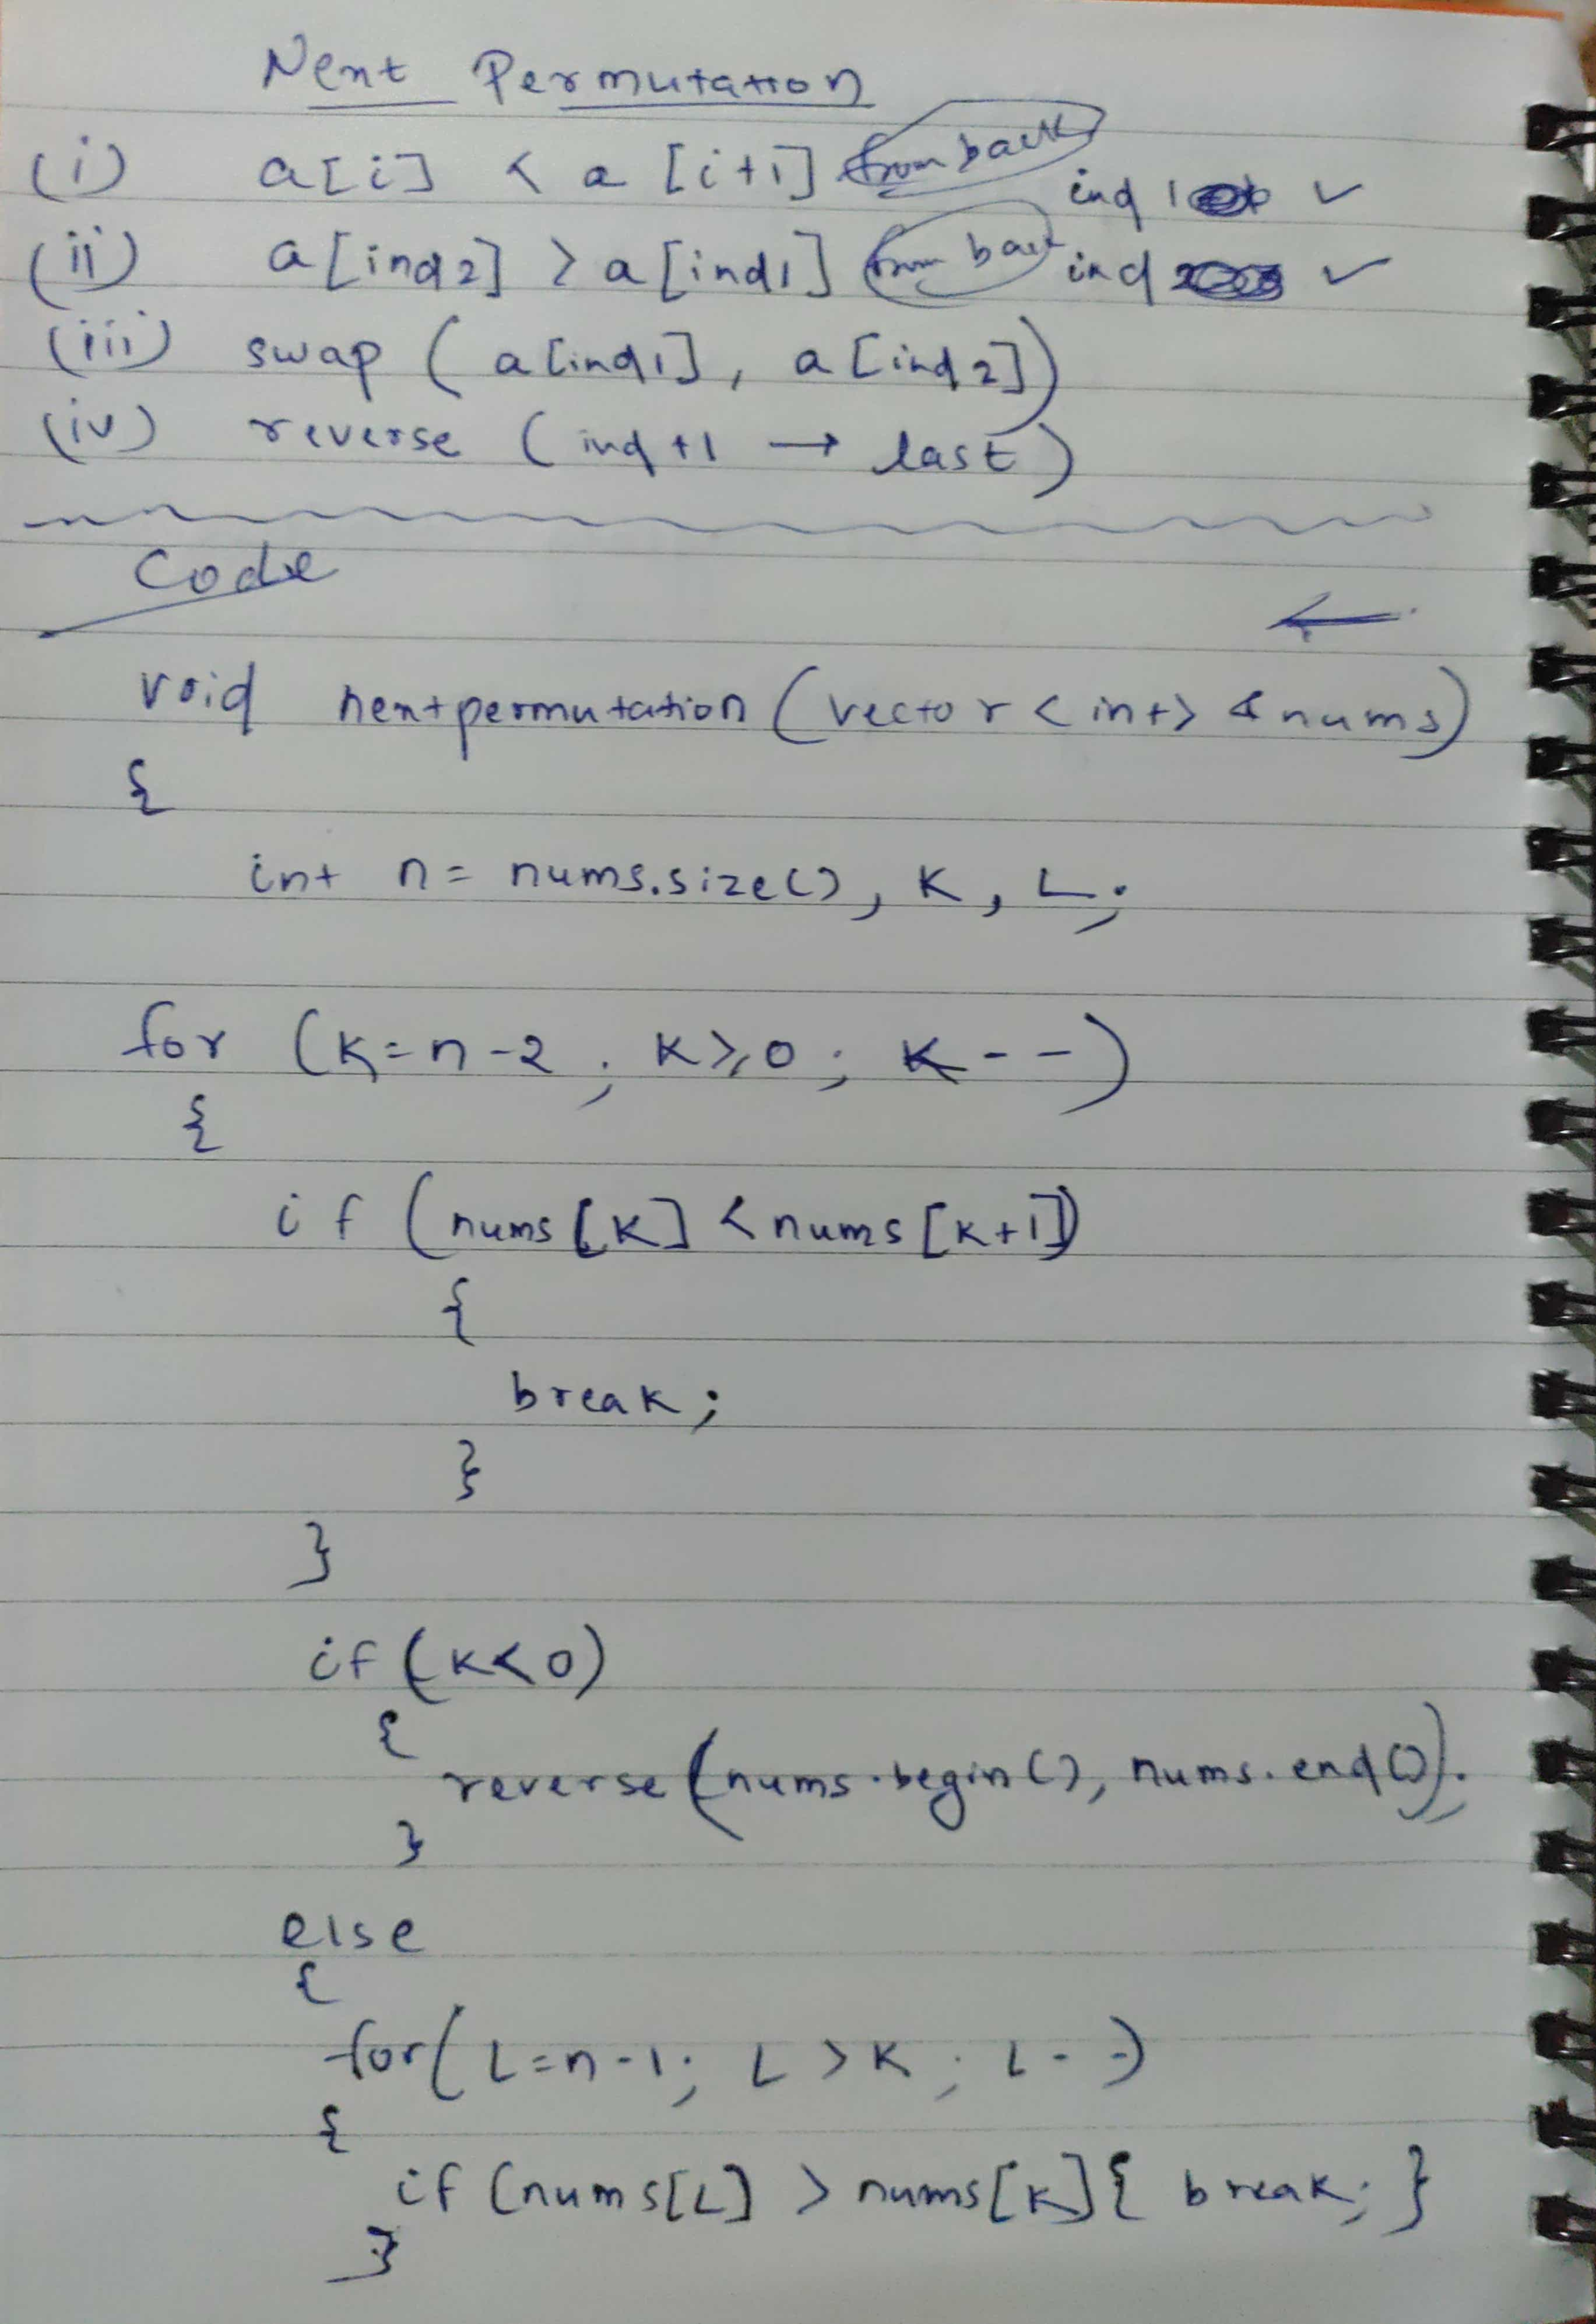 Next Permutation
(i) a[i] < a[i+1] from back ind 1 ✓
(ii) a[ind2] > a[ind1] from back ind 2 ✓
(iii) swap ( a[ind1], a[ind2])
(iv) reverse ( ind+1 → last )
Code
←
void nextpermutation ( vector < int> &nums)
{
int n = nums.size(), K, L;
for (K=n-2 ; K≥0 ; K--)
{
if (nums[K] < nums[K+1])
{
break;
}
}
if (K<0)
{
reverse (nums.begin(), nums.end());
}
else
{
for( L=n-1; L>K ; L--)
{
if (nums[L] > nums[K]{ break; }
}